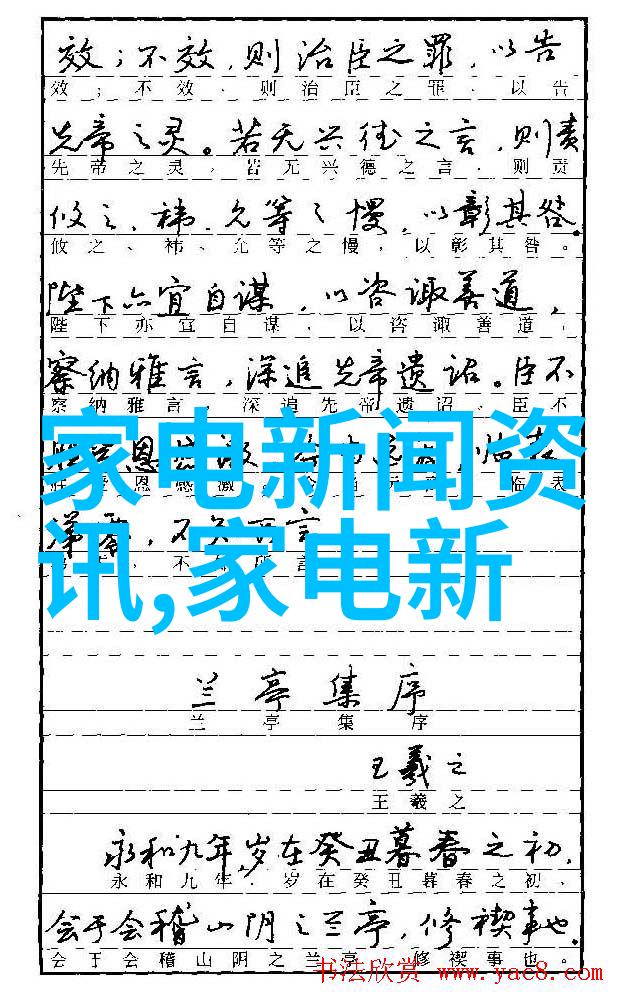 效；不效，则治臣之罪，以告
效；不效、则治臣之罪、以告
先帝之灵。若无兴德之言，则责
先帝之灵，若无兴德之言、则责
攸之、祎、允等之慢，以彰其咎。
攸之、祎、允等之慢，以彰其咎。
陛下亦宜自谋，以咨诹善道，
陛下亦宜自谋，以咨诹善道，
察纳雅言，深追先帝遗诏。臣不
察纳雅言，深追先帝遗诏。臣不
家电新闻资
恩 临表
恩感激 临表
讯,家电新
涕零，不知所言
不 所言
兰亭集序
兰亭集序
王羲之
王羲之
永和九年，岁在癸丑暮春之初，
永和九年，岁在癸丑暮春之初、
会于会稽山阴之兰亭，修禊事也。
会于会稽山阴之兰亭，修禊事也。
书法欣赏 www.yac8.com